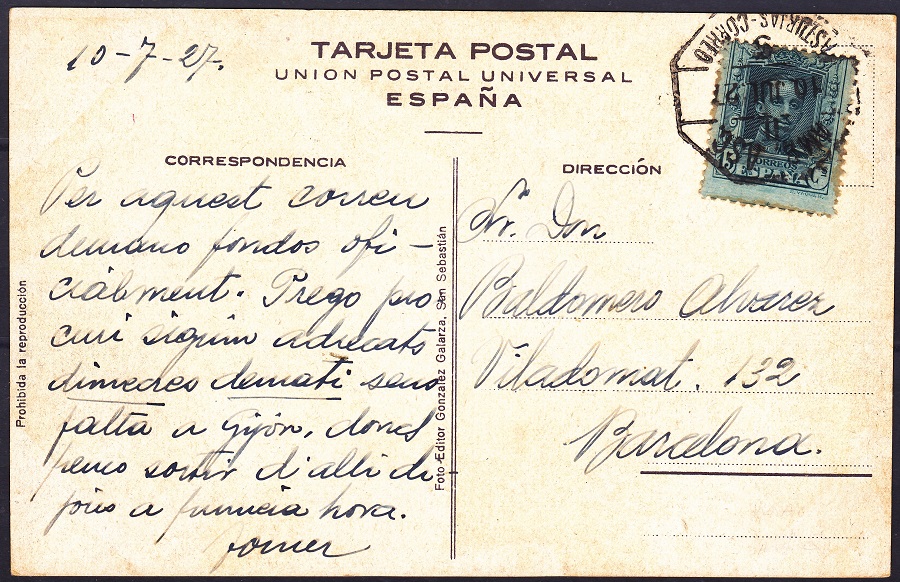 10-7-27.
TARJETA POSTAL
UNION POSTAL UNIVERSAL
ESPAÑA
CORRESPONDENCIA
Per aquest correu
demano fondos ofi-
cialment. Prego pro
curi siguin adreçats
dimecres demati sens
falta a Gijón, doncs
penso sortir d'alli di
jous a primera hora.
Prohibida la reproducción
Foto-Editor González Galarza. San Sebastián
ASTURIAS-CORREO
16 JUL 27
CORREOS
ESPAÑA
DIRECCIÓN
Sr. Don
Baldomero Alvarez
Viladomat. 132
Barcelona.